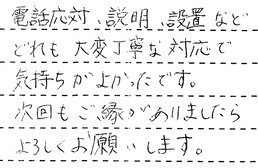 電話応対、説明、設置など
どれも大変丁寧な対応で
気持ちがよかったです。
次回もご縁がありましたら
よろしくお願いします。